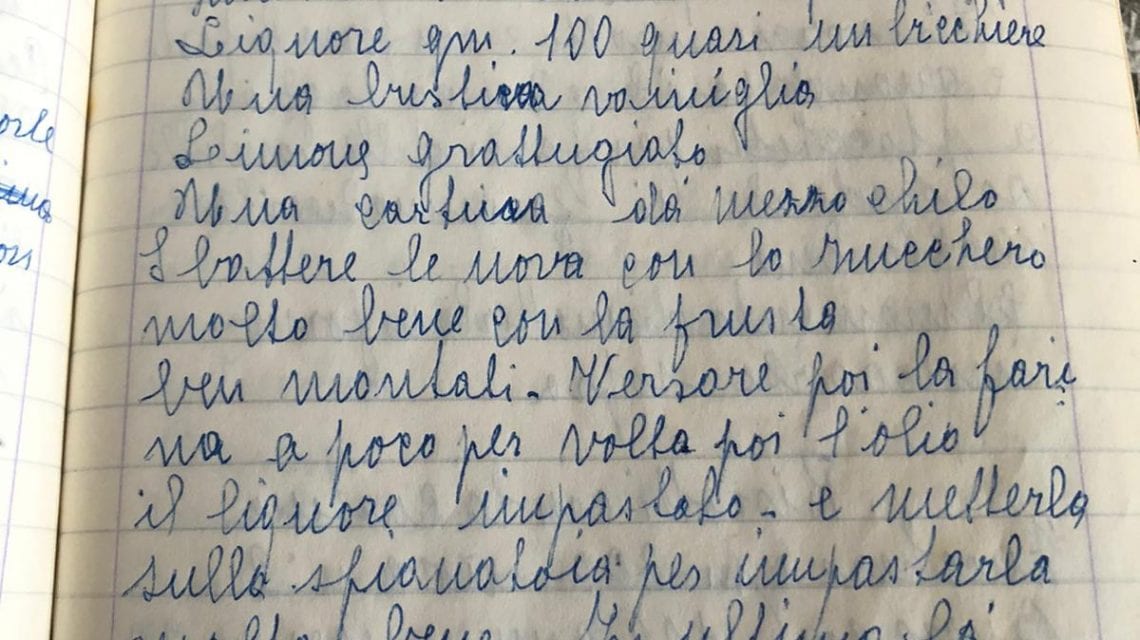 Liquore gm. 100 quasi un bicchiere
Una bustina vaniglia
Limone grattugiato
Una cartina da mezzo chilo
Sbattere le uova con lo zucchero
molto bene con la frusta
ben montali. Versare poi la fari
na a poco per volta poi l'olio
il liquore impastato. e metterla
sulla spianatoia per impastarla
molto bene